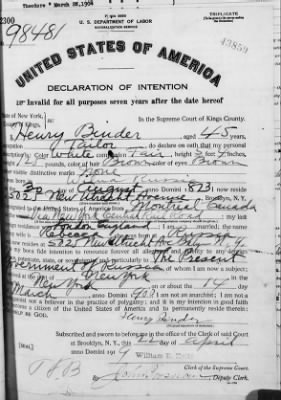 Theodore * March 28, 1904
2300
98481
U. S. DEPARTMENT OF LABOR
NATURALIZATION SERVICE
TRIPLICATE
43859
UNITED STATES OF AMERICA
DECLARATION OF INTENTION
Invalid for all purposes seven years after the date hereof
State of New York,
County of Kings,
In the Supreme Court of Kings County.
Henry Binder aged 45 years,
occupation Tailor, do declare on oath that my personal
description is: Color White, Fair, height feet 7 inches,
weight pounds, color of hair Brown, color of eyes Brown
other visible distinctive marks None
Russia
August, anno Domini 1873; now reside
New Utrecht Avenue, Brooklyn, N.Y.
United States of America from Montreal Canada
Via New York Central Rail Road; my last
foreign residence was London England
Russia
5025 New Utrecht Av Bklyn N.Y.
It is my bona fide intention to renounce forever all allegiance and fidelity to any foreign
prince, potentate, state, or sovereignty, and particularly to The Present
Government of Russia of whom I am now a subject;
New York
New York on or about the 14 day
March anno Domini 190; I am not an anarchist; I am not a
polygamist nor a believer in the practice of polygamy; and it is my intention in good faith
to become a citizen of the United States of America and to permanently reside therein:
HELP ME GOD.
Henry Binder
Subscribed and sworn to before me in the office of the Clerk of said Court
at Brooklyn, N. Y., this 22 day of April
anno Domini 191
[SEAL]
Clerk of the Supreme Court.
Deputy Clerk.